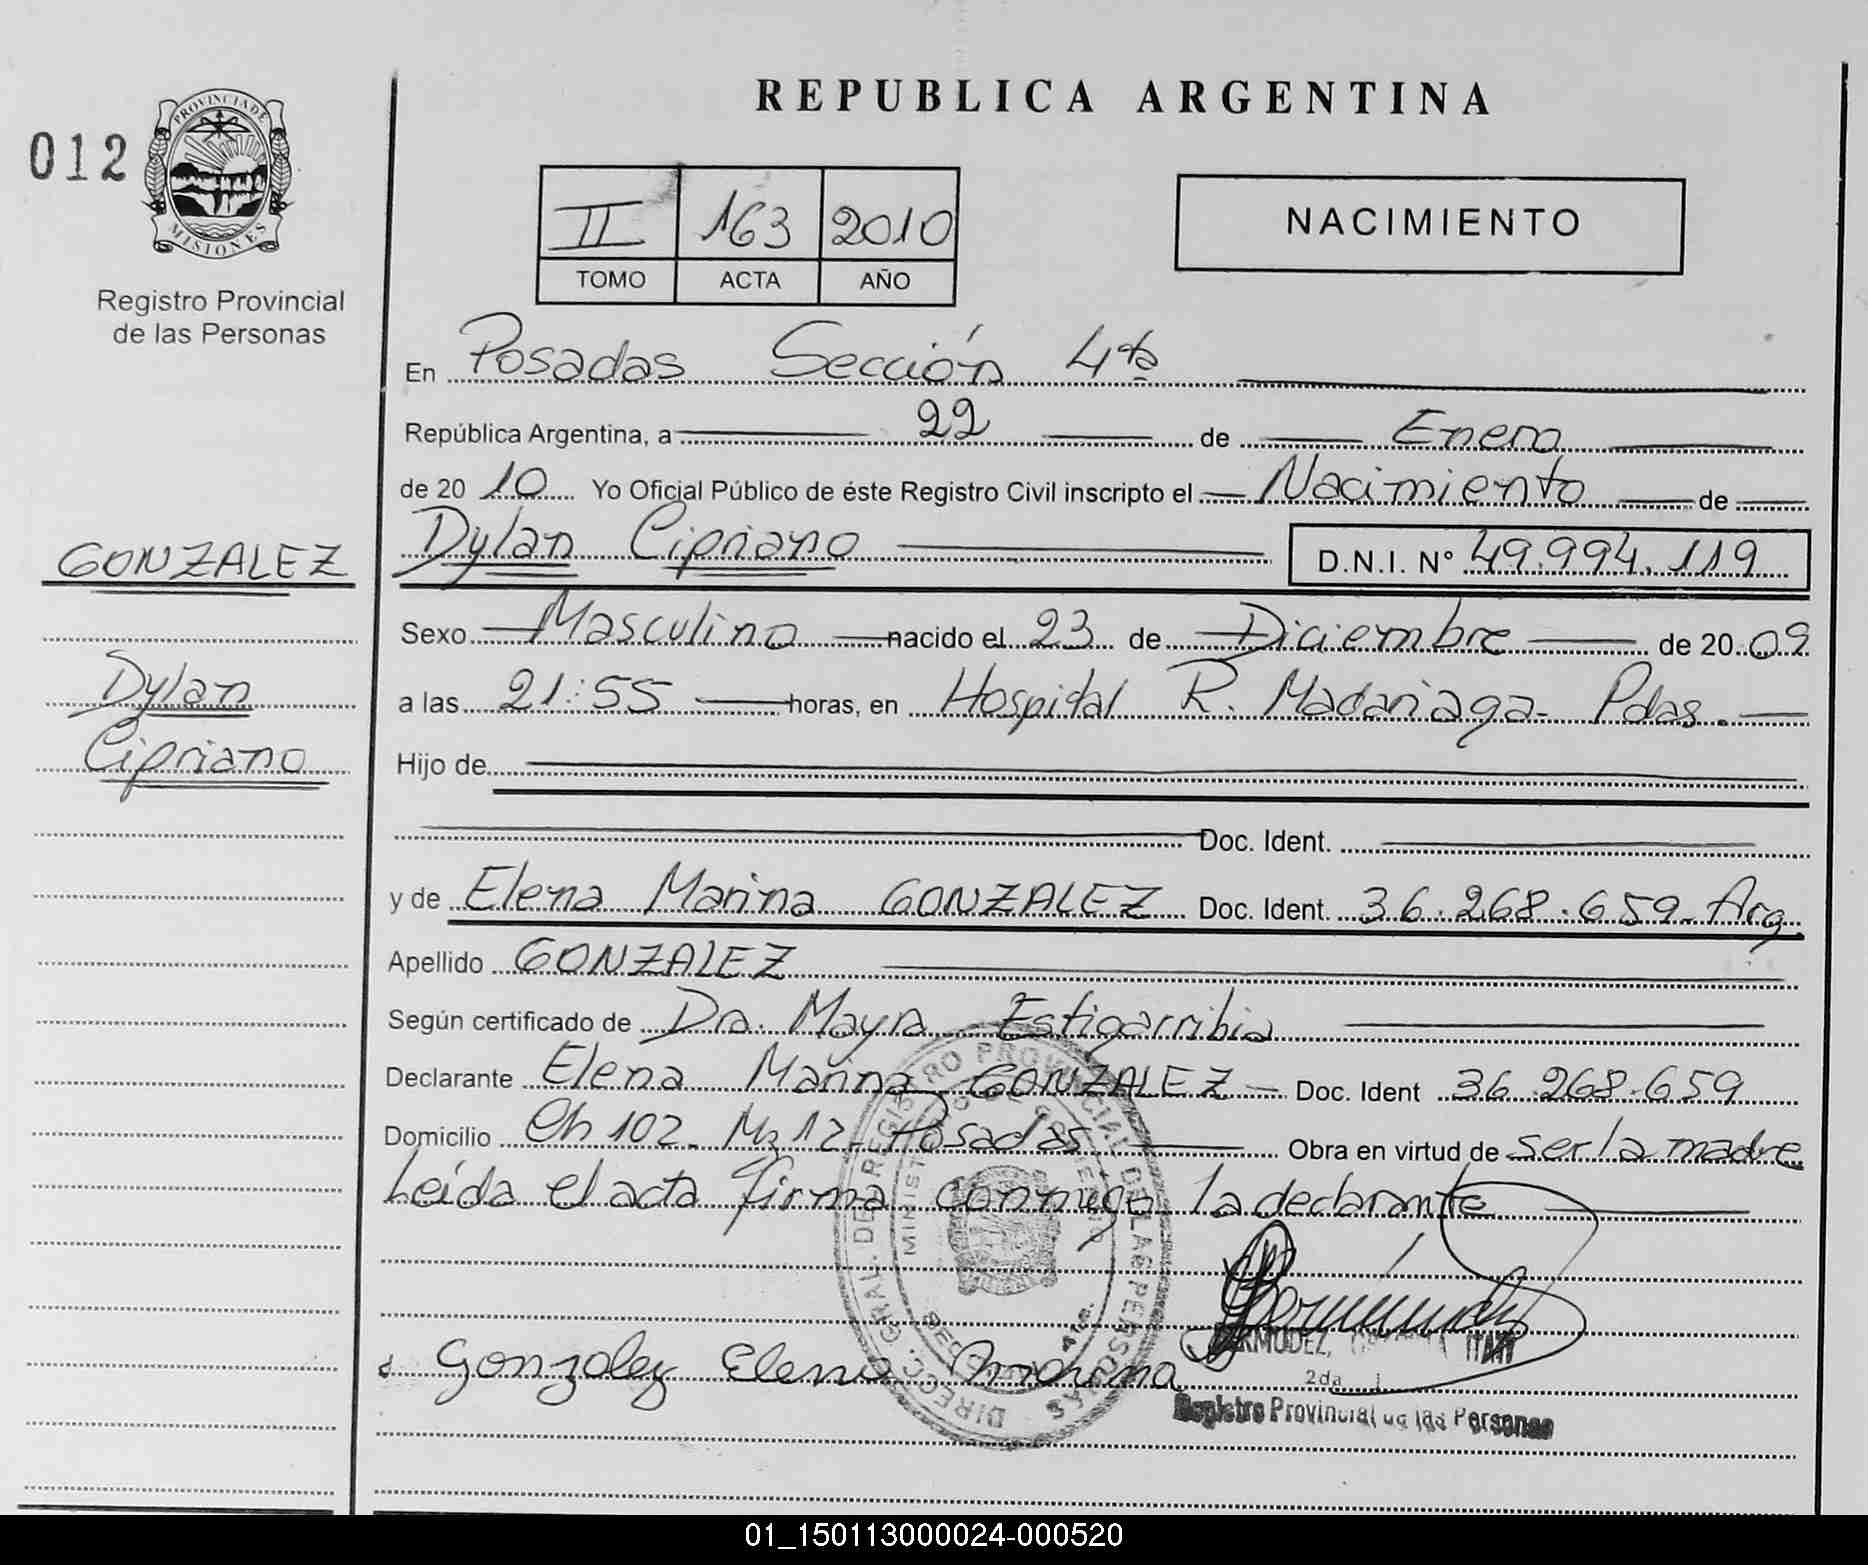 REPUBLICA ARGENTINA
012
PROVINCIA DE
MISIONES
Registro Provincial
de las Personas
II 163 2010
TOMO ACTA AÑO
NACIMIENTO
En Posadas Sección 4ta
República Argentina, a 22 de Enero
de 2010 Yo Oficial Público de éste Registro Civil inscripto el Nacimiento de
GONZALEZ
Dylan Cipriano
D.N.I. Nº 49.994.119
Sexo Masculino nacido el 23 de Diciembre de 2009
Dylan
Cipriano
a las 21:55 horas, en Hospital R. Madariaga - Pdas.
Hijo de
Doc. Ident.
y de Elena Marina GONZALEZ Doc. Ident. 36.268.659 - Arg.
Apellido GONZALEZ
Según certificado de Dra. Mayra Estigarribia
Declarante Elena Marina GONZALEZ - Doc. Ident 36.268.659
Domicilio Ch 102 - Mz 12 - Posadas Obra en virtud de ser la madre
Leída el acta firma conmigo la declarante
DIRECC. GRAL. DE REGISTRO PROVINCIAL DE LAS PERSONAS
Gonzalez Elena Marina
BERMUDEZ,
2da
Registro Provincial de las Personas
01_150113000024-000520